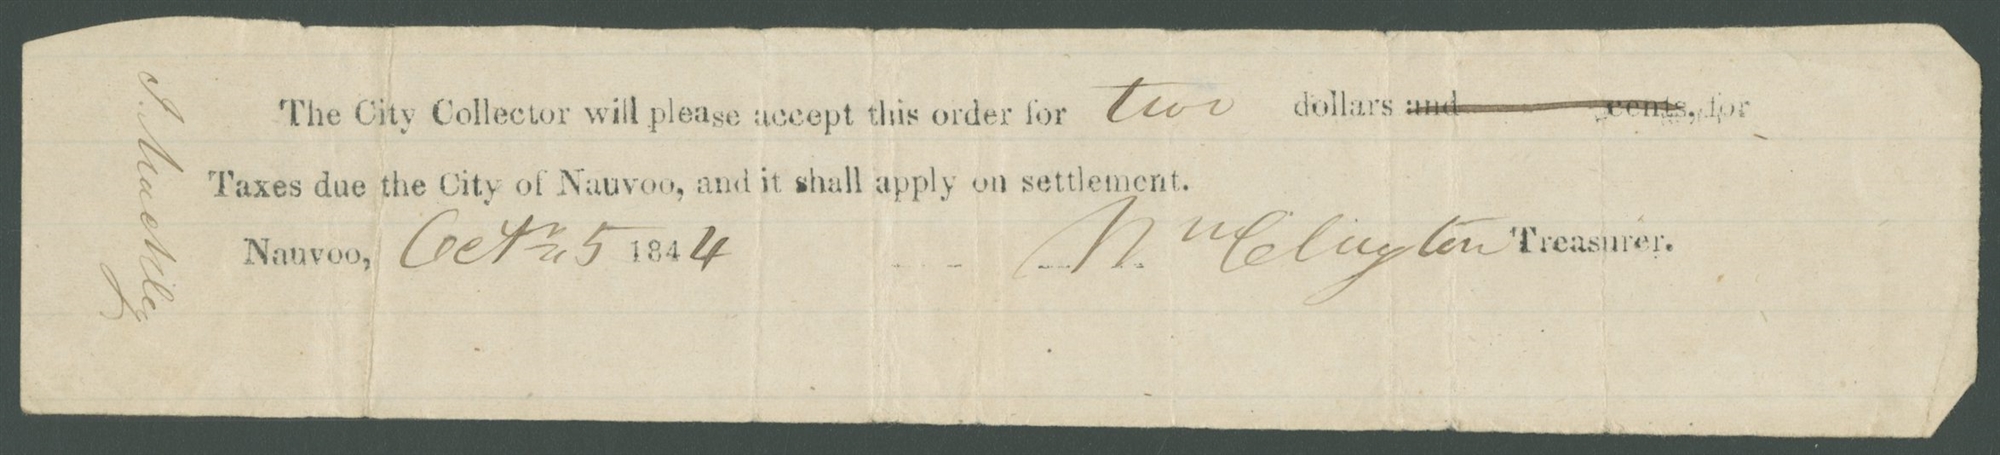 The City Collector will please accept this order for two dollars and cents, for
Taxes due the City of Nauvoo, and it shall apply on settlement.
Nauvoo, Octr 25 1844 Wm Clayton Treasurer.